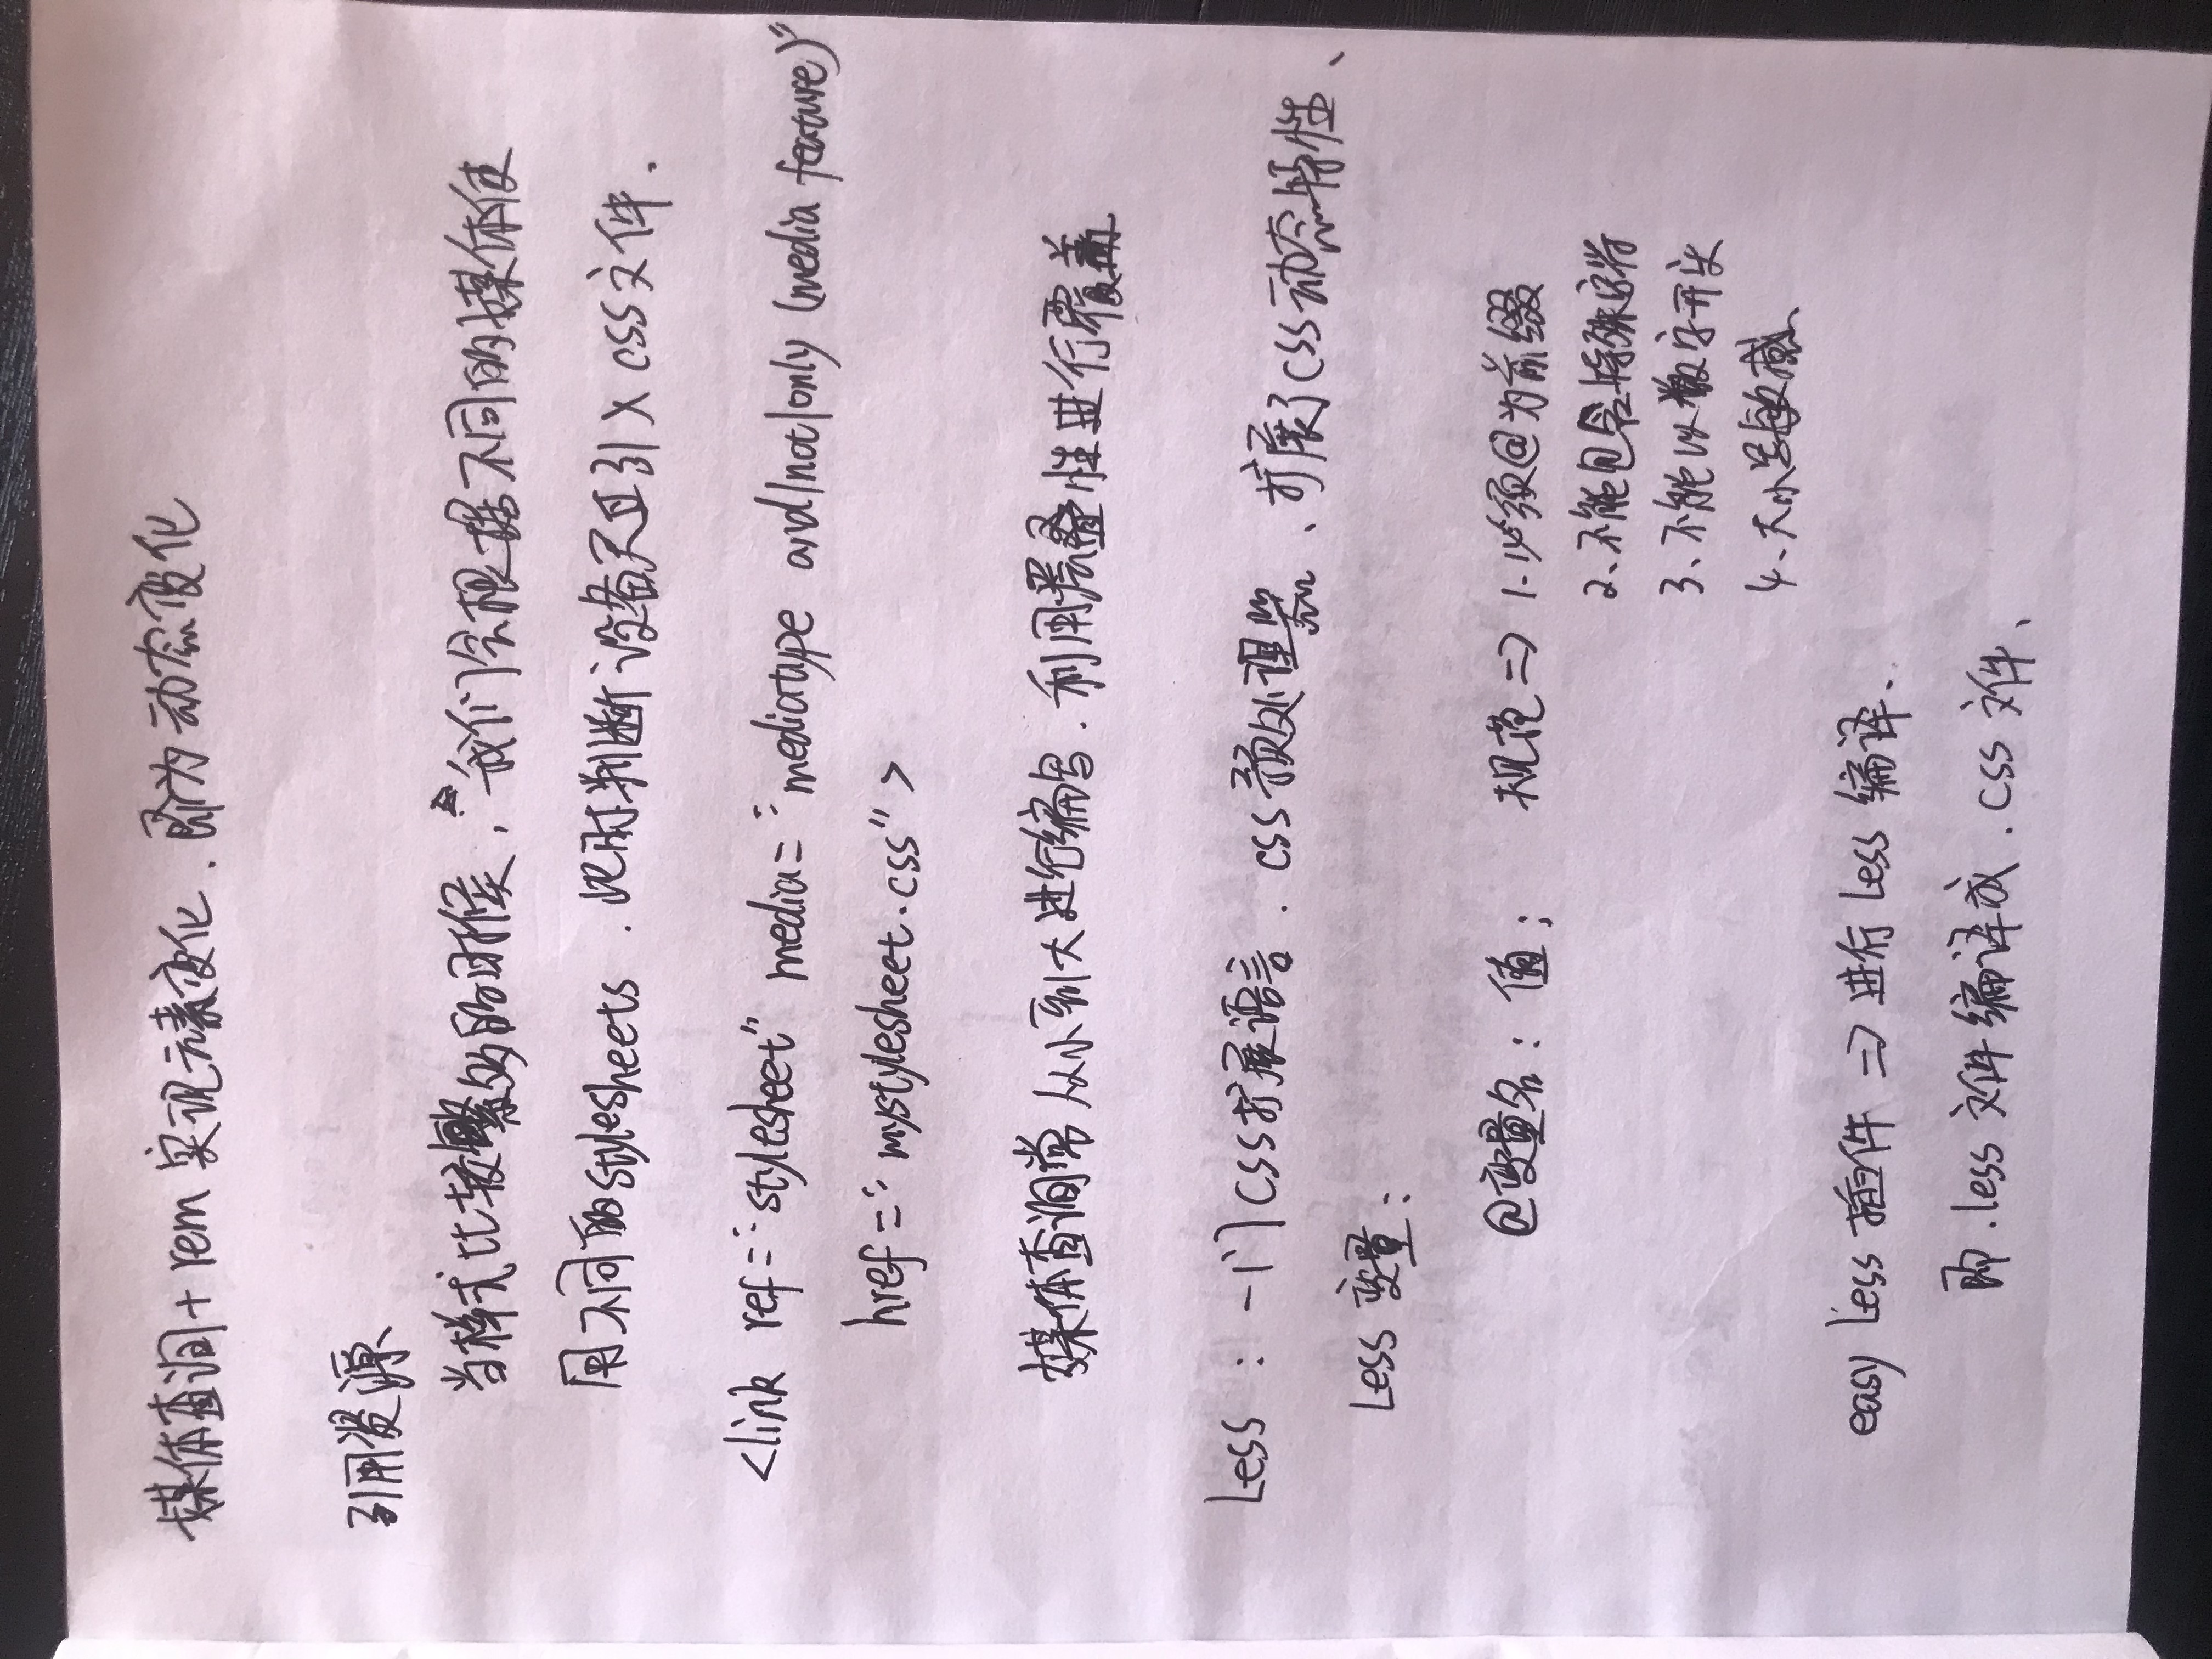 媒体查询+rem 实现元素变化.即为动态变化
引用资源
当样式比较繁多的时候,我们会根据不同的媒体使
用不同的stylesheets.此时判断设备尺且引入css文件.
<link ref="stylesheet" media="mediatype and|not|only (media feature)"
href="mystylesheet.css">
媒体查询常从小到大进行编写.利用层叠性进行覆盖
Less : 一门CSS扩展语言.css预处理器、扩展了css动态特性、
Less 变量:
@变量名: 值; 规范=> 1.必须@为前缀
2、不能包含特殊字符
3、不能以数字开头
4、大小写敏感
easy Less 插件 => 进行 Less 编译.
即.less 文件编译成.css 文件、